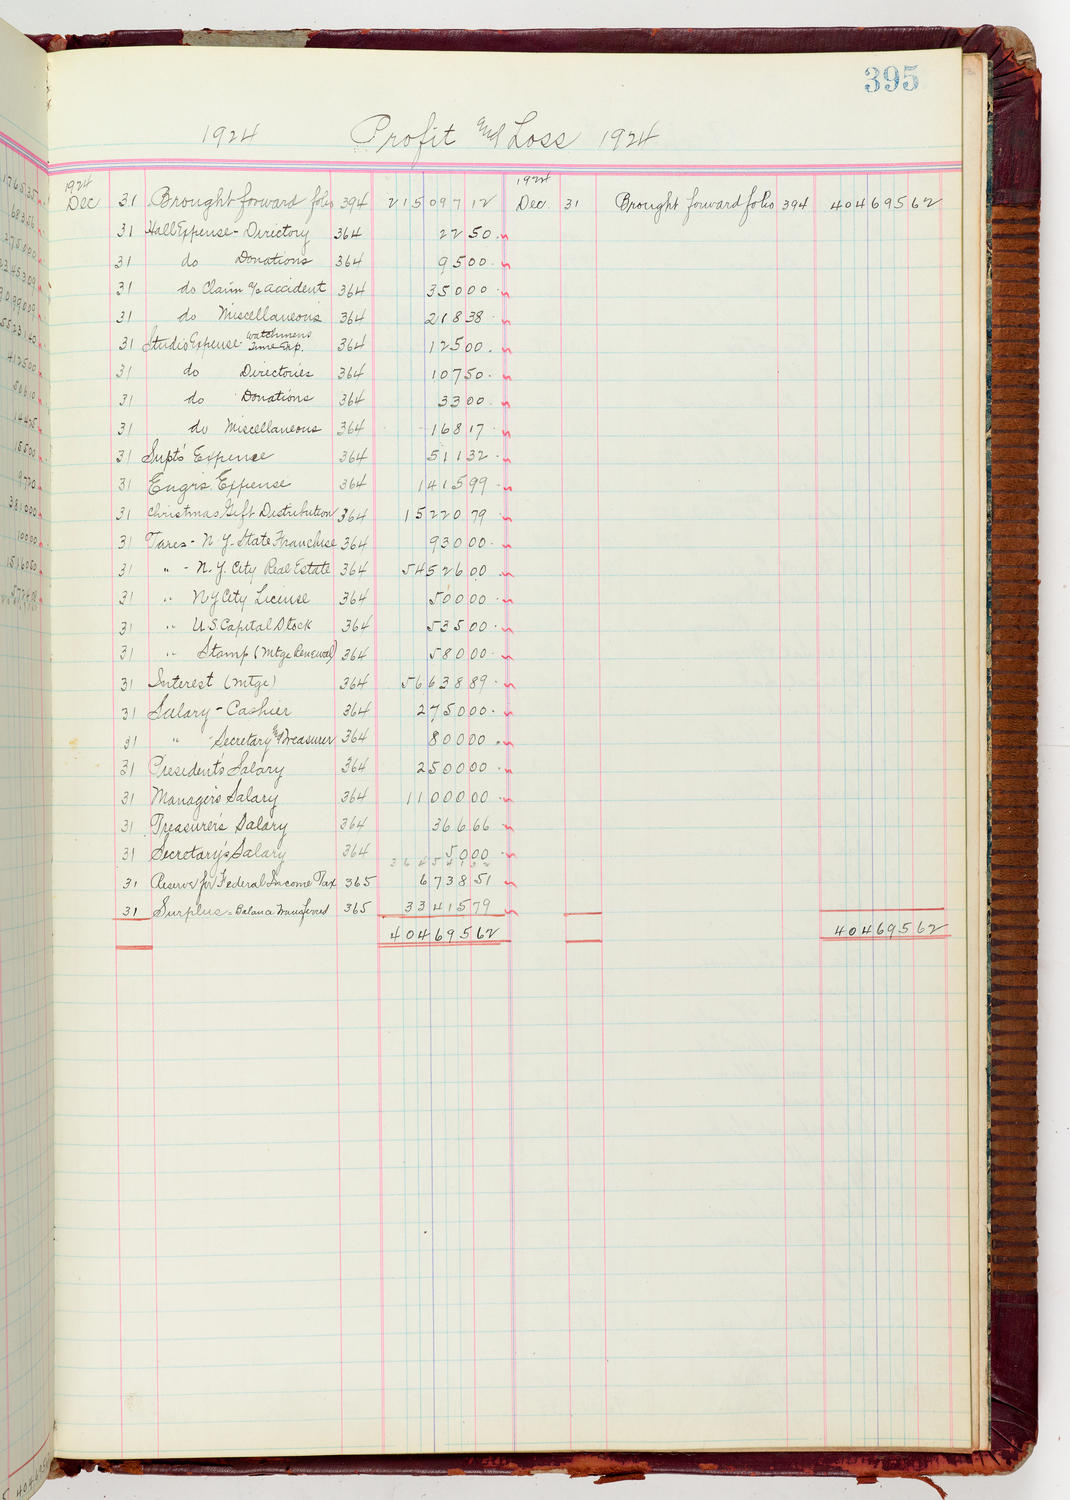 395
1924 Profit and Loss 1924
1924 1924
Dec 31 Brought forward folio 394 21509712 Dec. 31 Brought forward folio 394 40469562
31 Hall Expense - Directory 364 2250
31 do Donations 364 9500
31 do Claim a/c accident 364 35000
31 do Miscellaneous 364 21838
31 Studio Expense - Watchmens Time Exp. 364 12500
31 do Directories 364 10750
31 do Donations 364 3300
31 do Miscellaneous 364 16817
31 Supt's Expense 364 51132
31 Engr's Expense 364 141599
31 Christmas Gift Distribution 364 1522079
31 Taxes - N.Y. State Franchise 364 93000
31 " - N.Y. City Real Estate 364 5452600
31 " N Y City License 364 50000
31 " U.S. Capital Stock 364 53500
31 " Stamp (Mtge Renewal) 364 58000
31 Interest (Mtge) 364 5663889
31 Salary - Cashier 364 275000
31 " Secretary and Treasurer 364 80000
31 President's Salary 364 250000
31 Manager's Salary 364 1100000
31 Treasurer's Salary 364 36666
31 Secretary's Salary 364 5000
31 Reserve for Federal Income Tax 365 673851
31 Surplus - Balance Transferred 365 3341579
40469562 40469562